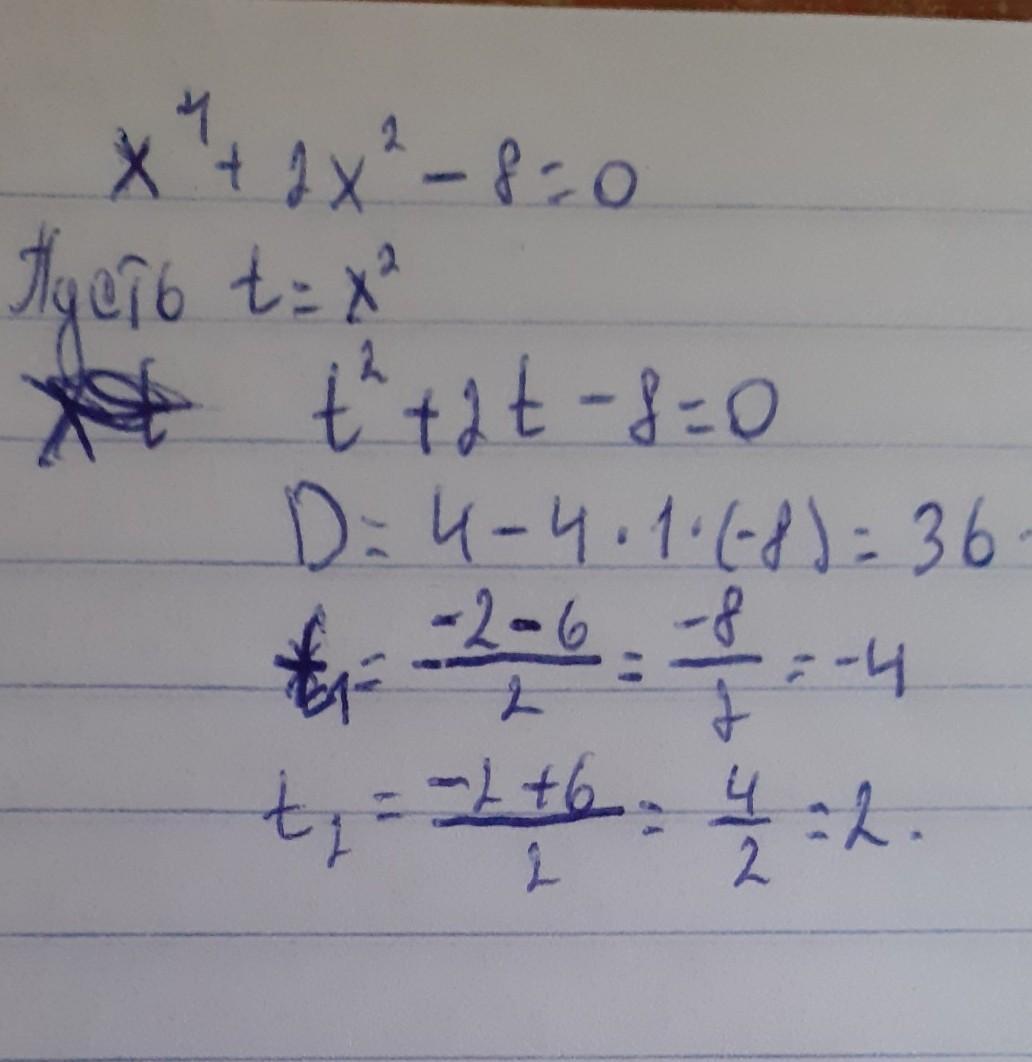 x⁴ + 2x² - 8 = 0
Пусть t = x²
t² + 2t - 8 = 0
D = 4 - 4 · 1 · (-8) = 36
t₁ = (-2 - 6)/2 = -8/2 = -4
t₂ = (-2 + 6)/2 = 4/2 = 2.